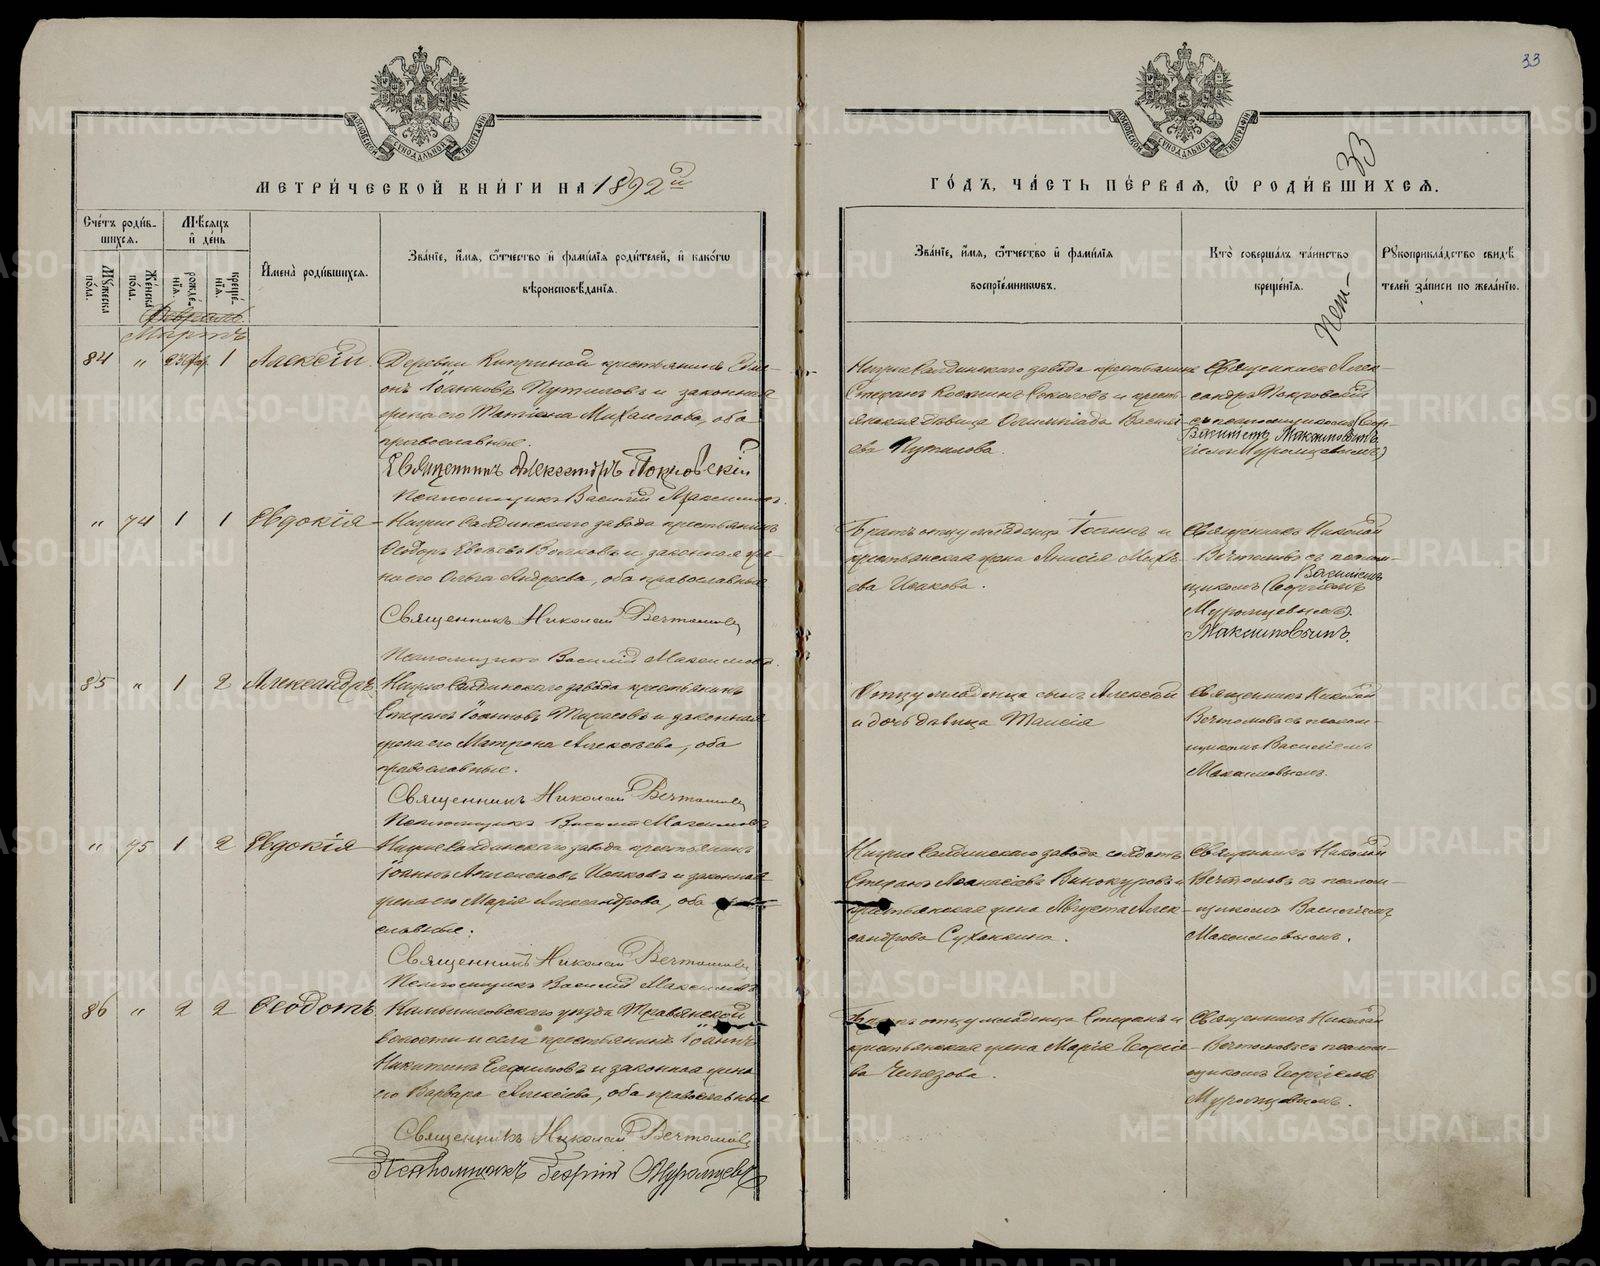 33
33
МЕТРИ́ЧЕСКОЙ КНИ́ГИ НА 1892й
ГО́ДЪ, ЧА́СТЬ ПЕ́РВАЯ, Ѽ РОДИ́ВШИХСЯ.
Сче́тъ роди́в-
шихся.
Му́жеска по́ла.
Же́нска по́ла.
Мѣ́сяцъ
и҆ де́нь
рожде́-
нїя.
креще́-
нїя.
И҆мена̀ роди́вшихся.
Зва́нїе, и҆́мя, ѻ҆́тчество и҆ фами́лїя роди́телей, и҆ како́гѡ
вѣроисповѣ́данїя.
Зва́нїе, и҆́мя, ѻ҆́тчество и҆ фами́лїя
воспрїе́мниковъ.
Кто̀ соверша́лъ та́инство
креще́нїя.
Рꙋкоприкла́дство свидѣ́-
телей за́писи по жела́нїю.
Февраль.
Мартъ
84 " 23 фев. 1 Алексій
Деревни крестьянинъ
онъ Іоанновъ Путиловъ и законная
жена его Татіана Михайлова, оба
православные.
Священникъ Александръ Покровскій
Псаломщикъ Василій Максимовъ.
Нижне Салдинскаго завода крестьянинъ
Стефанъ Козминъ Соколовъ и кресть-
янская дѣвица Олимпіада Василі-
ева Путилова.
Священникъ Алек-
сандръ Покровскій
съ псаломщикомъ
Василіемъ Максимовымъ
Муромцевымъ)
" 74 1 1 Евдокія
Нижне Салдинскаго завода крестьянинъ
Ѳеодоръ Волковъ и законная же-
на его Ольга Андреева, оба православные
Священникъ Николай Вечтомовъ
Псаломщикъ Василій Максимовъ.
Братъ отцу младенца Іоаннъ и
крестьянская жена Анисія
ева Исакова.
Священникъ Николай
Вечтомовъ съ псалом-
Василіемъ
щикомъ (Георгіемъ
Муромцевымъ).
Максимовымъ.
85 " 1 2 Александръ
Нижне Салдинскаго завода крестьянинъ
Стефанъ Іоанновъ и законная
жена его Матрона Алексѣева, оба
православные.
Священникъ Николай Вечтомовъ
Псаломщикъ Василій Максимовъ
Отцу младенца сынъ Алексѣй
и дочь дѣвица Таисія
Священникъ Николай
Вечтомовъ съ псалом-
щикомъ Василіемъ
Максимовымъ.
" 75 1 2 Евдокія
Нижне Салдинскаго завода крестьянинъ
Іоаннъ Исаковъ и законная
жена его Марія Александрова, оба
славные.
Священникъ Николай Вечтомовъ
Псаломщикъ Василій Максимовъ
Нижне Салдинскаго завода солдатъ
Стефанъ Аѳанасіевъ Винокуровъ и
крестьянская жена Августа Алек-
сандрова Суханкина.
Священникъ Николай
Вечтомовъ съ псалом-
щикомъ Василіемъ
Максимовымъ.
86 " 2 2 Ѳеодотъ
Камышловскаго уѣзда Травянской
волости и села крестьянинъ Іоаннъ
Никитинъ Ефимовъ и законная жена
его Варвара Алексіева, оба православные
Священникъ Николай Вечтомовъ
Псаломщикъ Георгій Муромцевъ
Братъ отцу младенца Стефанъ и
крестьянская жена Марія Георгіе-
ва
Священникъ Николай
Вечтомовъ съ псалом-
щикомъ Георгіемъ
Муромцевымъ.
METRIKI.GASO-URAL.RU